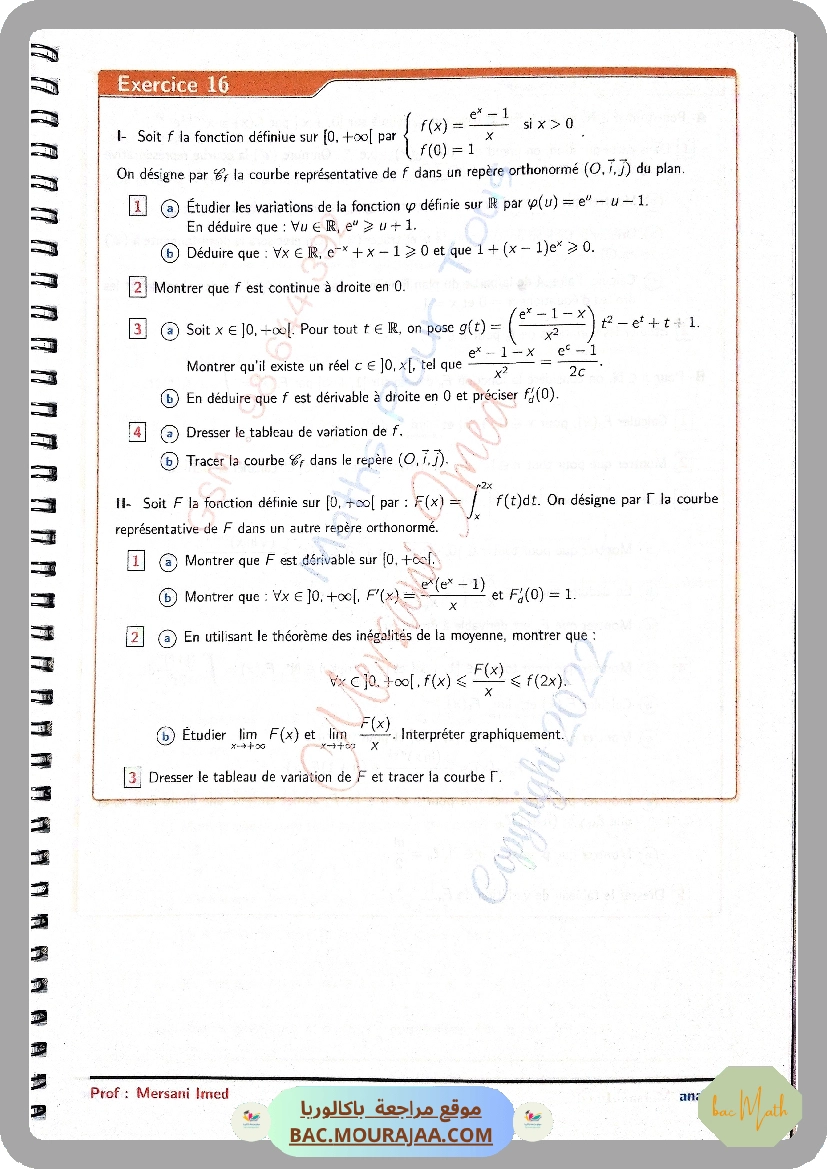 Exercice 16
I- Soit f la fonction définiue sur [0, +∞[ par { f(x) = (e^x − 1)/x si x > 0
f(0) = 1 .
On désigne par 𝒞f la courbe représentative de f dans un repère orthonormé (O, i⃗, j⃗) du plan.
1 a Étudier les variations de la fonction φ définie sur ℝ par φ(u) = e^u − u − 1.
En déduire que : ∀u ∈ ℝ, e^u ⩾ u + 1.
b Déduire que : ∀x ∈ ℝ, e^−x + x − 1 ⩾ 0 et que 1 + (x − 1)e^x ⩾ 0.
2 Montrer que f est continue à droite en 0.
3 a Soit x ∈ ]0, +∞[. Pour tout t ∈ ℝ, on pose g(t) = ((e^x − 1 − x)/x²) t² − e^t + t + 1.
Montrer qu'il existe un réel c ∈ ]0, x[, tel que (e^x − 1 − x)/x² = (e^c − 1)/2c.
b En déduire que f est dérivable à droite en 0 et préciser f'd(0).
4 a Dresser le tableau de variation de f.
b Tracer la courbe 𝒞f dans le repère (O, i⃗, j⃗).
II- Soit F la fonction définie sur [0, +∞[ par : F(x) = ∫_x^2x f(t)dt. On désigne par Γ la courbe
représentative de F dans un autre repère orthonormé.
1 a Montrer que F est dérivable sur [0, +∞[.
b Montrer que : ∀x ∈ ]0, +∞[, F'(x) = e^x(e^x − 1)/x et F'd(0) = 1.
2 a En utilisant le théorème des inégalités de la moyenne, montrer que :
∀x ⊂ ]0, +∞[, f(x) ⩽ F(x)/x ⩽ f(2x).
b Étudier lim x→+∞ F(x) et lim x→+∞ F(x)/x. Interpréter graphiquement.
3 Dresser le tableau de variation de F et tracer la courbe Γ.
Maths Pour Tous
Mersani Imed
Copyright 2022
Prof : Mersani Imed
ana
موقع مراجعة باكالوريا
BAC.MOURAJAA.COM
bac Math